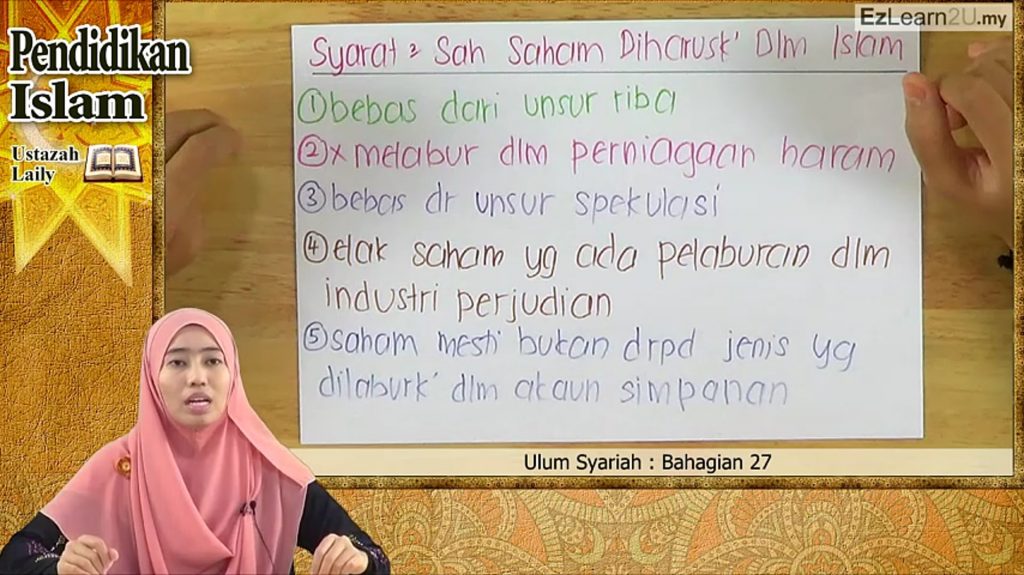 Pendidikan
Islam
Ustazah
Laily
EzLearn2U.my
Syarat² Sah Saham Diharusk' Dlm Islam
① bebas dari unsur riba
② x melabur dlm perniagaan haram
③ bebas dr unsur spekulasi
④ elak saham yg ada pelaburan dlm
industri perjudian
⑤ saham mesti bukan drpd jenis yg
dilaburk' dlm akaun simpanan
Ulum Syariah : Bahagian 27